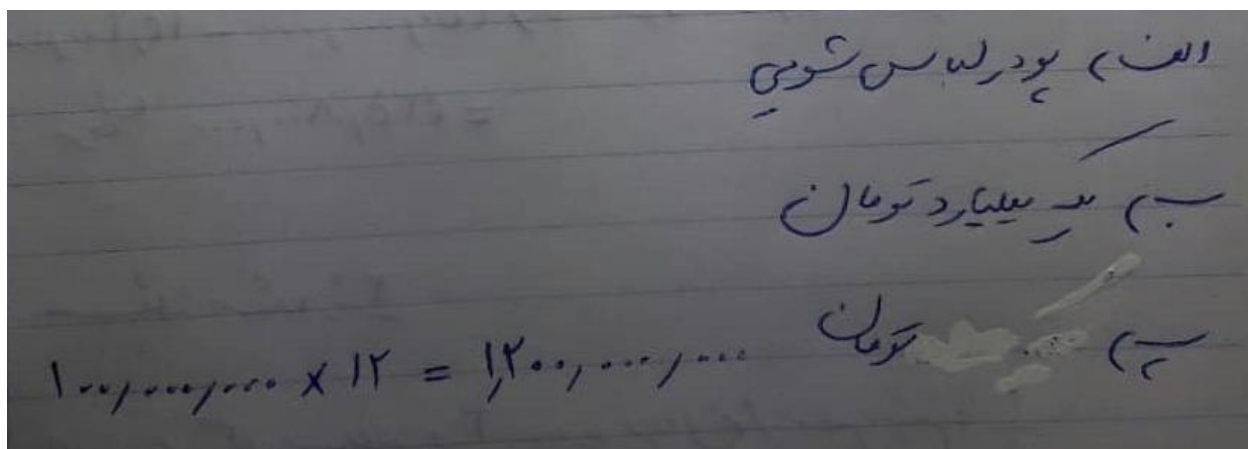 الف) پودر لباس شویی
ب) یک میلیارد تومان
پ) تومان ۱۰۰,۰۰۰,۰۰۰ × ۱۲ = ۱,۲۰۰,۰۰۰,۰۰۰